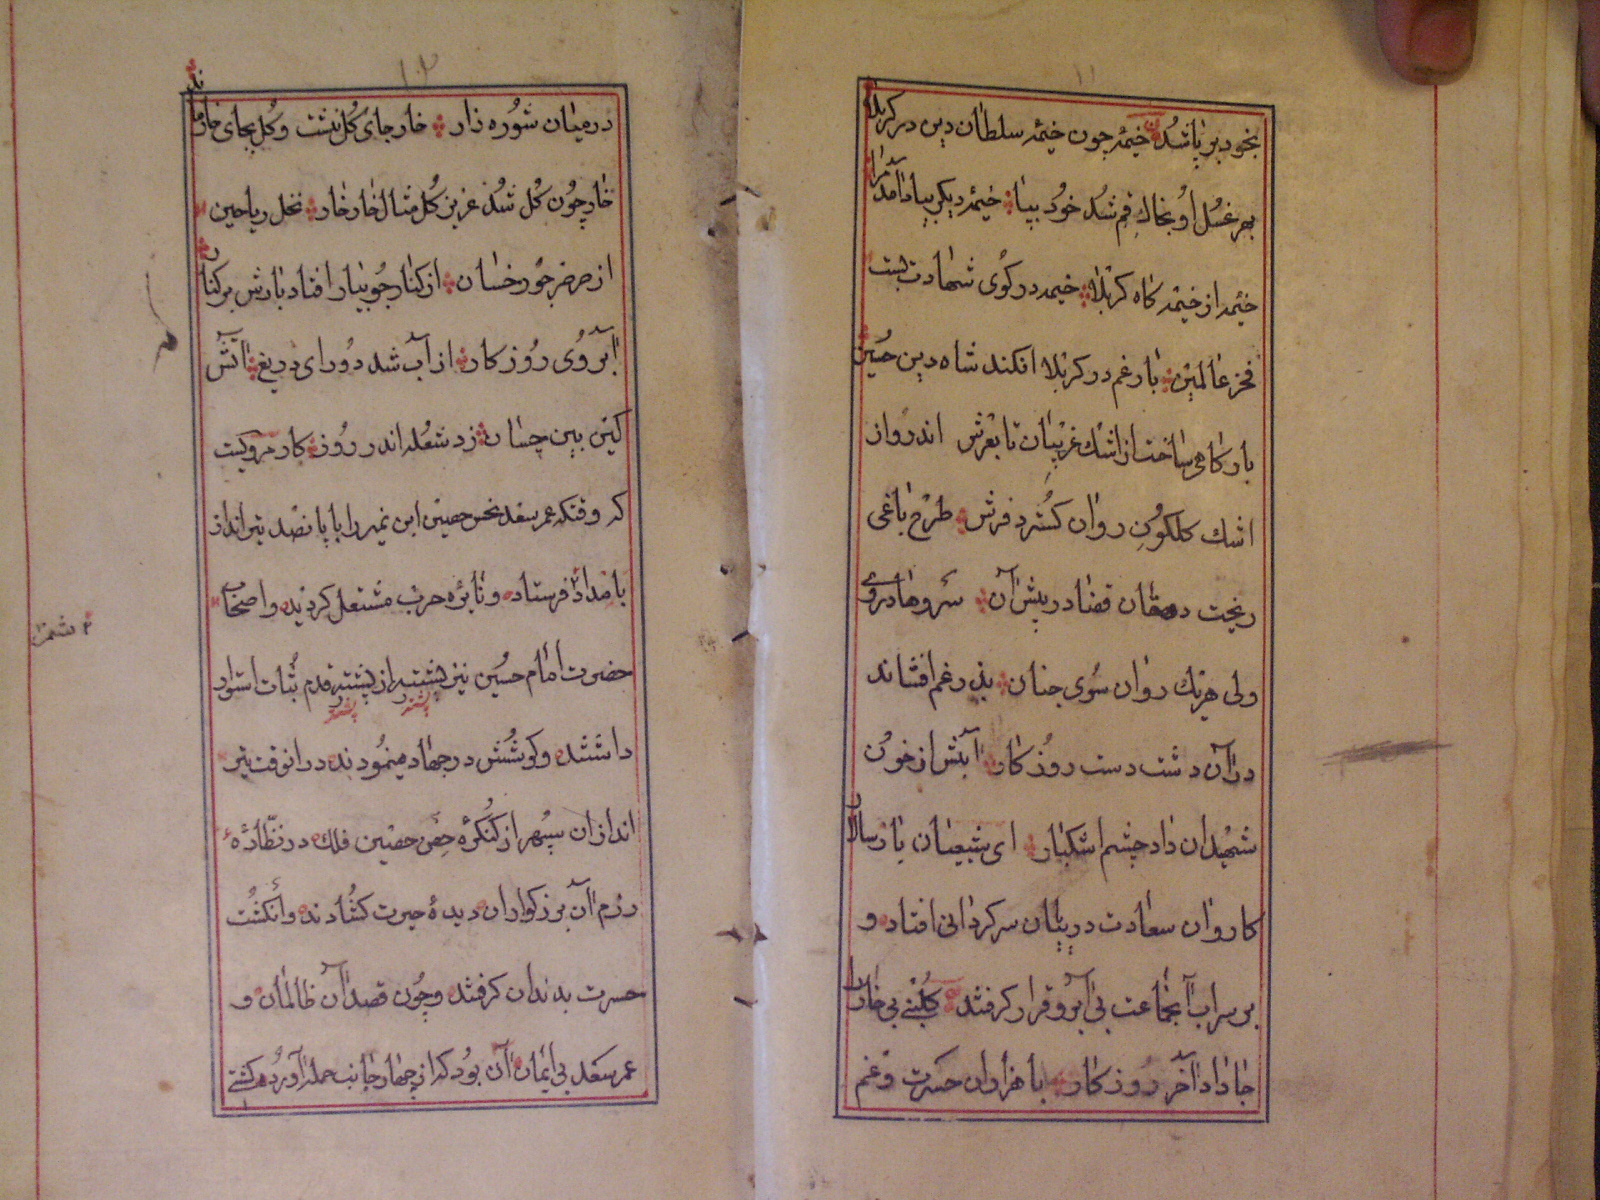 ۱۱
بخود برپا شد خیمهٔ چون خیمهٔ سلطان دین در کربلا
بهر غسل او بخاک قم شد خود بپا خیمهٔ دیگر بپا آمد
خیمه از خیمه کاه کربلا خیمه در کوی شهادت بست
فخر عالمین بار غم در کربلا افکند شاه دین حسین
بارکاهی ساخت از اشک غریبان تا بعرش اندر او از
اشک کلکون روان کسترد فرش طرح باغی
ریخت دهقان قضا در پیش آن سروها در وی
ولی هریک روان سوی جنان بذر غم افشاند
در آن دشت دست روزکار آبش از خون
شهیدان داد چشم اشکبار ای شیعیان یار سالار
کاروان سعادت در بیابان سرکردانی افتاد و
بر سراب آنجماعت بی آبرو قرار کرفتند کلبنی بی خار را
جا داد آخر روزکار با هزاران حسرت و غم
۱۲
در میان شوره زار خار جای کل نشست و کل بجای خار ماند
خار چون کل شد عزیز کل مثال خار خار نخل ریاحین
از صرصر جور خسان از کنار جویبار افتاد بارش برکنار
آبروی روزکار از آب شد دور ای دریغ آتش
کین بین چسان زد شعله اندر روزکار مرویست
که وقتیکه عمر سعد نحس حصین ابن نمیر را با پانصد تیرانداز
بامداد فرستاد و نایره حرب مشتعل کردید و اصحاب
حضرت امام حسین نیز پیشتر از پیشتر قدم ثبات استوار
داشتند و کوشش در جهاد مینمودند در انوقت تیر
اندازان سپهر از کنکره حصن حصین فلک در نظاره
رزم آن بزرکواران دیده حیرت کشادند و انکشت
حسرت بدندان کرفتند و چون قصد آن ظالمان و
عمر سعد بی ایمان آن بود که از چهار جانب حمله آورده کشتی